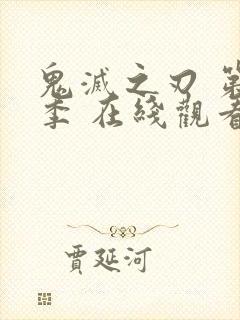 鬼滅之刃 第
季 在綫觀看
賈延河